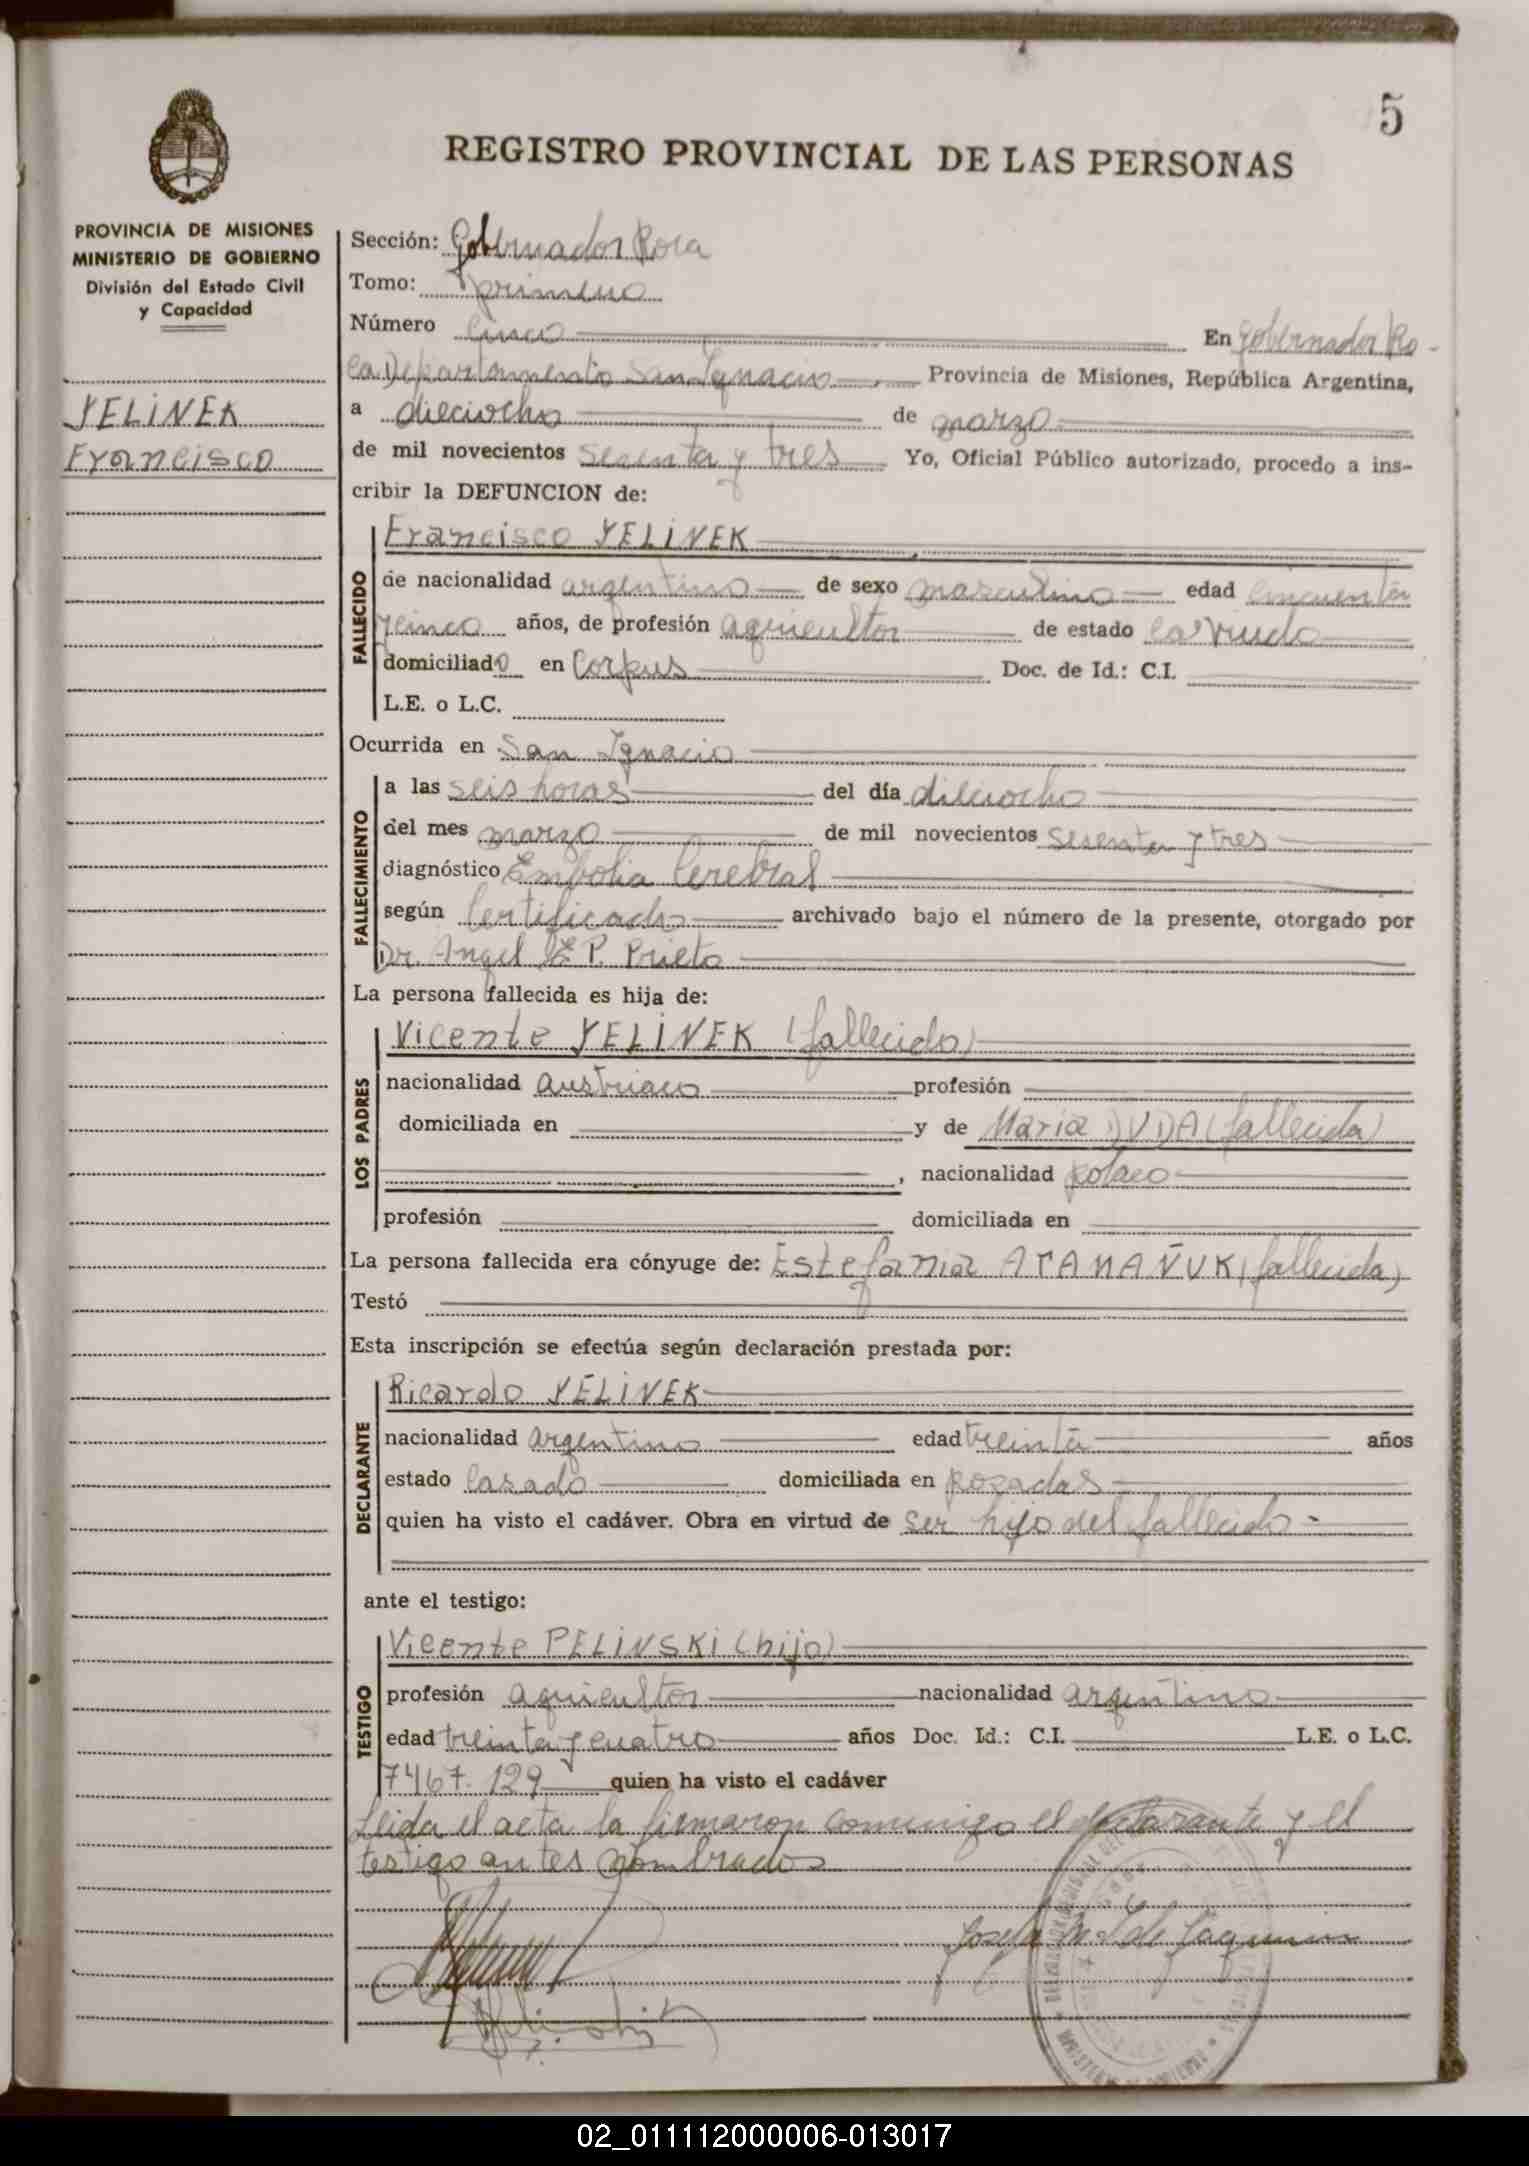 5
REGISTRO PROVINCIAL DE LAS PERSONAS
PROVINCIA DE MISIONES
MINISTERIO DE GOBIERNO
División del Estado Civil
y Capacidad
YELINEK
Francisco
Sección: Gobernador Roca
Tomo: primero
Número cinco En Gobernador Ro-
ca Departamento San Ignacio, Provincia de Misiones, República Argentina,
a dieciocho de marzo
de mil novecientos sesenta y tres Yo, Oficial Público autorizado, procedo a ins-
cribir la DEFUNCION de:
FALLECIDO
Francisco YELINEK
de nacionalidad argentino de sexo masculino edad cincuenta
y cinco años, de profesión agricultor de estado ca viudo
domiciliado en Corpus Doc. de Id.: C.I.
L.E. o L.C.
Ocurrida en San Ignacio
FALLECIMIENTO
a las seis horas del día dieciocho
del mes marzo de mil novecientos sesenta y tres
diagnóstico Embolia Cerebral
según Certificado archivado bajo el número de la presente, otorgado por
Dr. Angel P. Prieto
La persona fallecida es hija de:
LOS PADRES
Vicente YELINEK (fallecido)
nacionalidad austriaco profesión
domiciliada en y de Maria DUDA (fallecida)
, nacionalidad polaco
profesión domiciliada en
La persona fallecida era cónyuge de: Estefania (fallecida)
Testó
Esta inscripción se efectúa según declaración prestada por:
DECLARANTE
Ricardo YELINEK
nacionalidad argentino edad treinta años
estado casado domiciliada en posadas
quien ha visto el cadáver. Obra en virtud de ser hijo del fallecido -
ante el testigo:
TESTIGO
Vicente PELINSKI (hijo)
profesión agricultor nacionalidad argentino
edad treinta y cuatro años Doc. Id.: C.I. L.E. o L.C.
7467.129 quien ha visto el cadáver
Leida el acta la firmaron conmigo el declarante y el
testigo antes nombrados
02_011112000006-013017